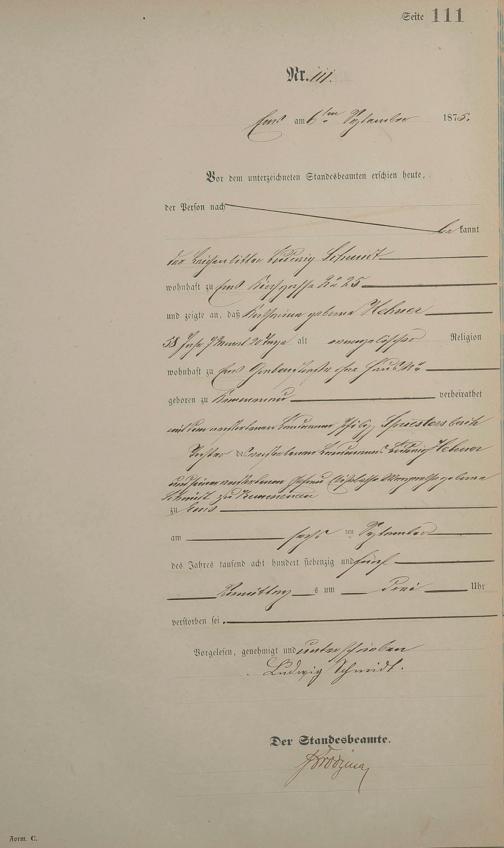 Seite 111
Nr. 111.
Ems am 6ten September 1875.
Vor dem unterzeichneten Standesbeamten erschien heute,
der Person nach
be kannt
der Leichenbitter Ludwig Schmidt
wohnhaft zu Ems Kirchgasse No 25
und zeigte an, daß Katharina geborne Hehner
58 Jahr 7 Monat 20 Tage alt evangelischer Religion
wohnhaft zu Ems
geboren zu Kemmenau verheirathet
mit dem verstorbenen
Tochter Ludwig Hehner
und seiner verstorbenen Ehefrau geborne
Schmidt zu Kemmenau
zu Ems
am sechs ten September
des Jahres tausend acht hundert siebenzig und fünf
Vormittags um Drei Uhr
verstorben sei.
Vorgelesen, genehmigt und unterschrieben
Ludwig Schmidt.
Der Standesbeamte.
Form. C.